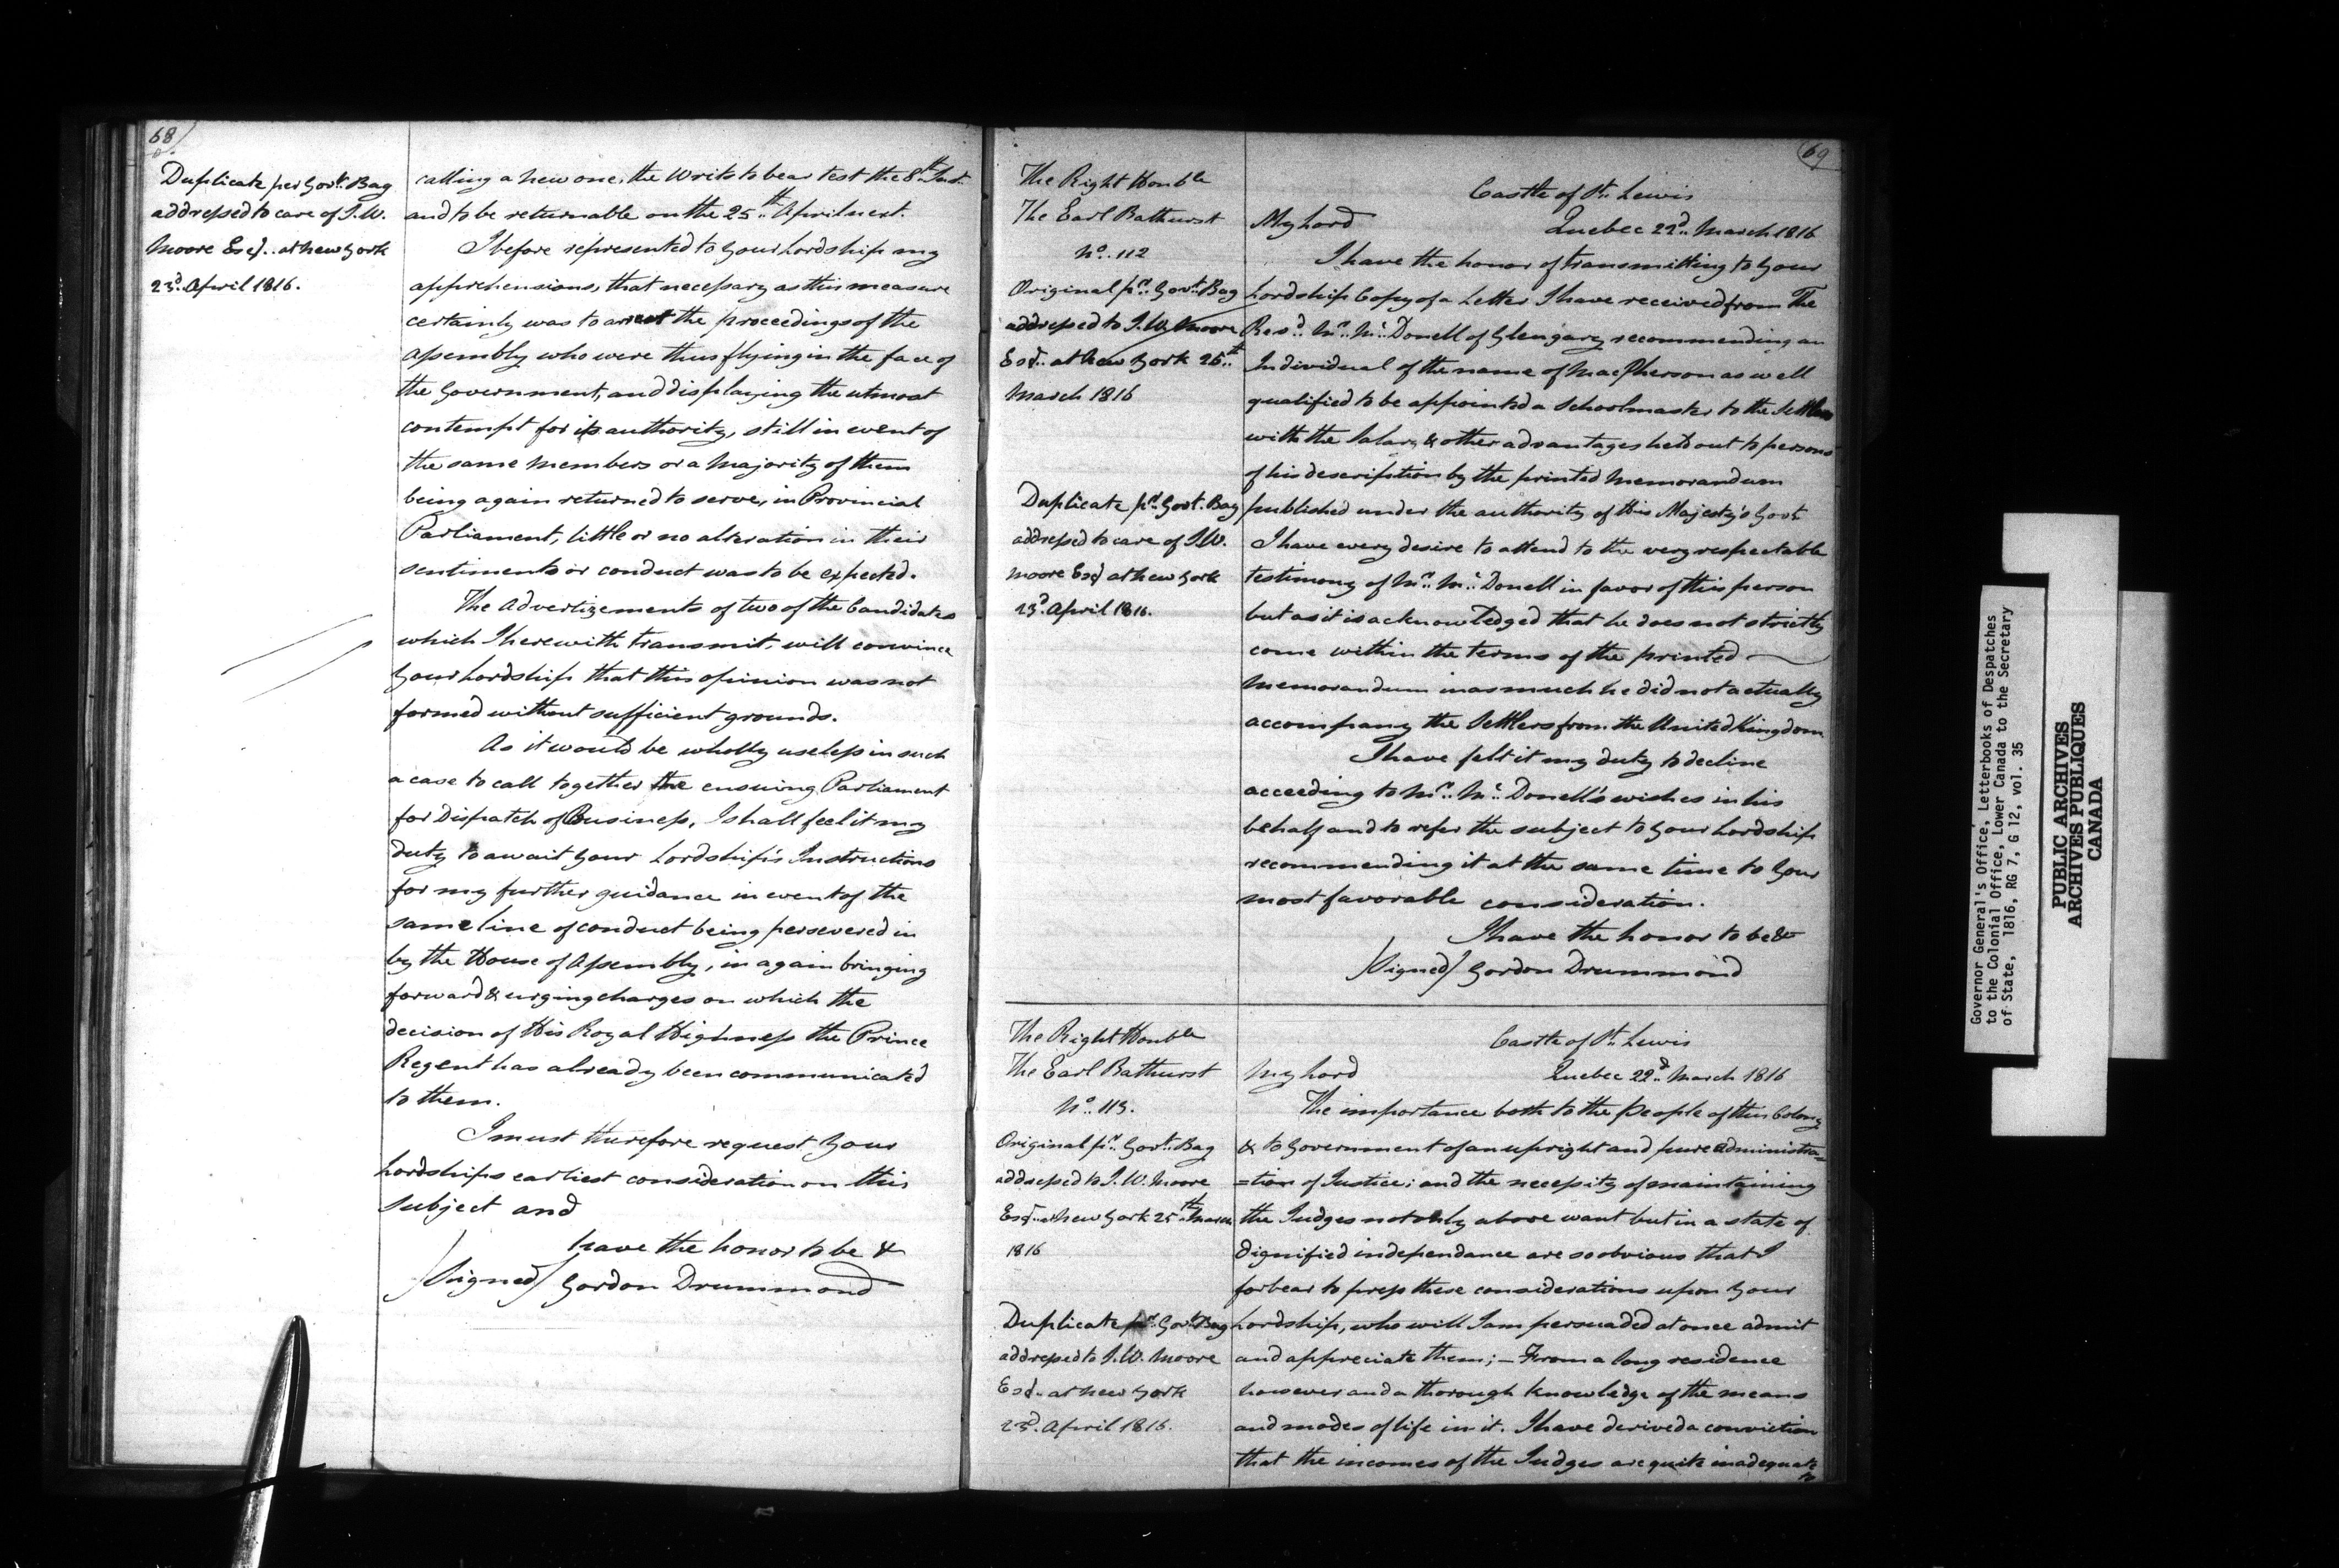 68
Duplicate per Govt. Bag
addressed to care of I.W.
Moore Esq. at New York
23d. April 1816.
calling a new one, the Writs to bear test the 8th. Inst.
and to be returnable on the 25th. April next.
I before represented to Your Lordship my
apprehensions, that necessary as this measure
certainly was to arrest the proceedings of the
Assembly who were thus flying in the face of
the Government, and displaying the utmost
contempt for its authority, still in event of
the same Members or a Majority of them
being again returned to serve, in Provincial
Parliament, little or no alteration in their
sentiments or conduct was to be expected.
The Advertizements of two of the Candidates
which I herewith transmit, will convince
Your Lordship that this opinion was not
formed without sufficient grounds.
As it would be wholly useless in such
a case to call together the ensuing Parliament
for Dispatch of Business, I shall feel it my
duty to await Your Lordship's Instructions
for my further guidance in event of the
same line of conduct being persevered in
by the House of Assembly, in again bringing
forward & urging charges on which the
decision of His Royal Highness the Prince
Regent has already been communicated
to them.
I must therefore request Your
Lordships earliest consideration on this
subject and
have the honor to be &
/Signed/ Gordon Drummond
69
The Right Honble
The Earl Bathurst
No. 112
Original pr. Govt. Bag
addressed to I.W. Moore
Esqr. at New York 25th.
March 1816
Duplicate pr. Govt. Bag
addressed to care of I.W.
Moore Esq at New York
23d. April 1816.
Castle of St. Lewis
My Lord Quebec 22d. March 1816
I have the honor of transmitting to Your
Lordship Copy of a Letter I have received from The
Revd. Mr. Mc. Donell of Glengary recommending an
Individual of the name of MacPherson as well
qualified to be appointed a Schoolmaster to the Settlers
with the Salary & other advantages held out to persons
of his description by the printed Memorandum
published under the authority of His Majesty's Govt.
I have every desire to attend to the very respectable
testimony of Mr. Mc. Donell in favor of this person
but as it is acknowledged that he does not strictly
come within the terms of the printed
Memorandum inasmuch he did not actually
accompany the Settlers from the United Kingdom
I have felt it my duty to decline
acceeding to Mr. Mc. Donell's wishes in his
behalf and to refer the subject to Your Lordship
recommending it at the same time to Your
most favorable consideration.
I have the honor to be &
/Signed/ Gordon Drummond
The Right Honble
The Earl Bathurst
No. 113.
Original pr. Govt. Bag
addressed to I.W. Moore
Esqr. at New York 25th. March
1816
Duplicate pr. Govt. Bag
addressed to I.W. Moore
Esq. at New York
23d. April 1816.
Castle of St. Lewis
My Lord Quebec 22d. March 1816
The importance both to the People of this Colony
& to Government of an upright and pure administra=
=tion of Justice; and the necessity of maintaining
the Judges not only above want but in a state of
dignified independance are so obvious that I
forbear to press these considerations upon Your
Lordship, who will I am persuaded at once admit
and appreciate them; - From a long residence
however and a thorough knowledge of the means
and modes of life in it. I have derived a conviction
that the incomes of the Judges are quite inadequate
to
Governor General's Office, Letterbooks of Despatches
to the Colonial Office, Lower Canada to the Secretary
of State, 1816, RG 7, G 12, vol. 35
PUBLIC ARCHIVES
ARCHIVES PUBLIQUES
CANADA